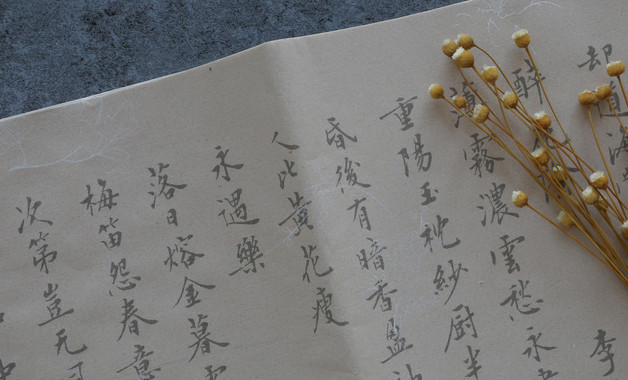 却道海
醉花 李
薄霧濃雲愁永
重陽玉枕紗厨半
昏後有暗香盈
人比黃花瘦
永遇樂
落日熔金暮
梅笛怨春意
次第豈无